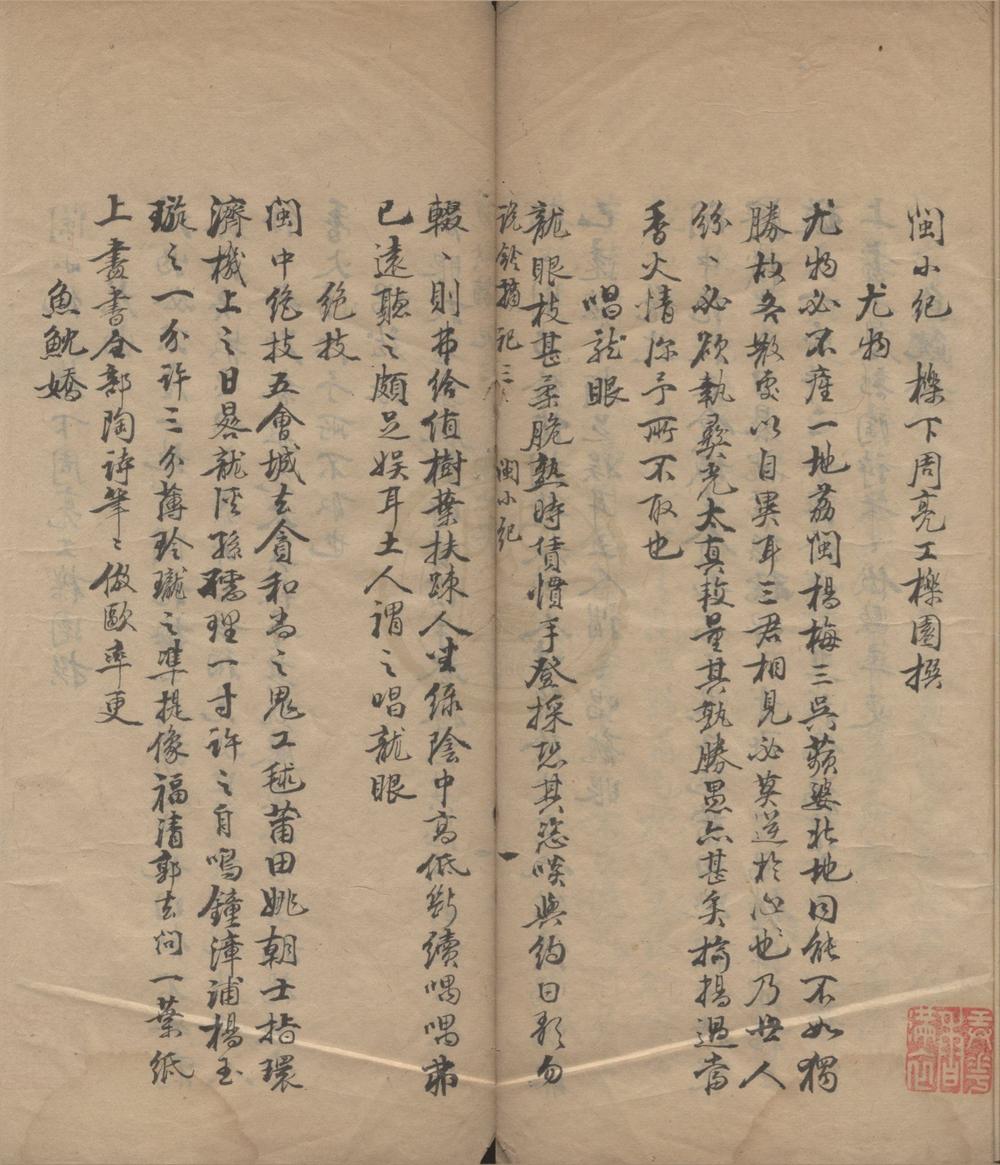 閩小紀 櫟下周亮工櫟園撰
尤物
尤物必不產一地荔閩楊梅三吳蘋婆北地同能不如獨
勝故各散處以自異耳三君相見必莫逆於心也乃世人
紛〻必欲執彝光太真較量其孰勝愚亦甚矣摘揚過當
香火情深予所不取也
唱龍眼
龍眼枝甚柔脆熟時賃慣手登採恐其恣啖與約曰歌勿
說鈴摘記 三 閩小紀 一
輟〻則弗給值樹葉扶踈人坐綠陰中高低斷續喁喁弗
已遠聽之頗足娛耳土人謂之唱龍眼
絕技
閩中絕技五會城去貪和尚之鬼工毬莆田姚朝士指環
濟機上之日晷龍溪孫孺理一寸許之自鳴鐘漳浦楊玉
璇之一分許三分薄玲瓏之準提像福清郭去問一葉紙
上畫書全部陶詩筆〻倣歐率更
魚魫嬌